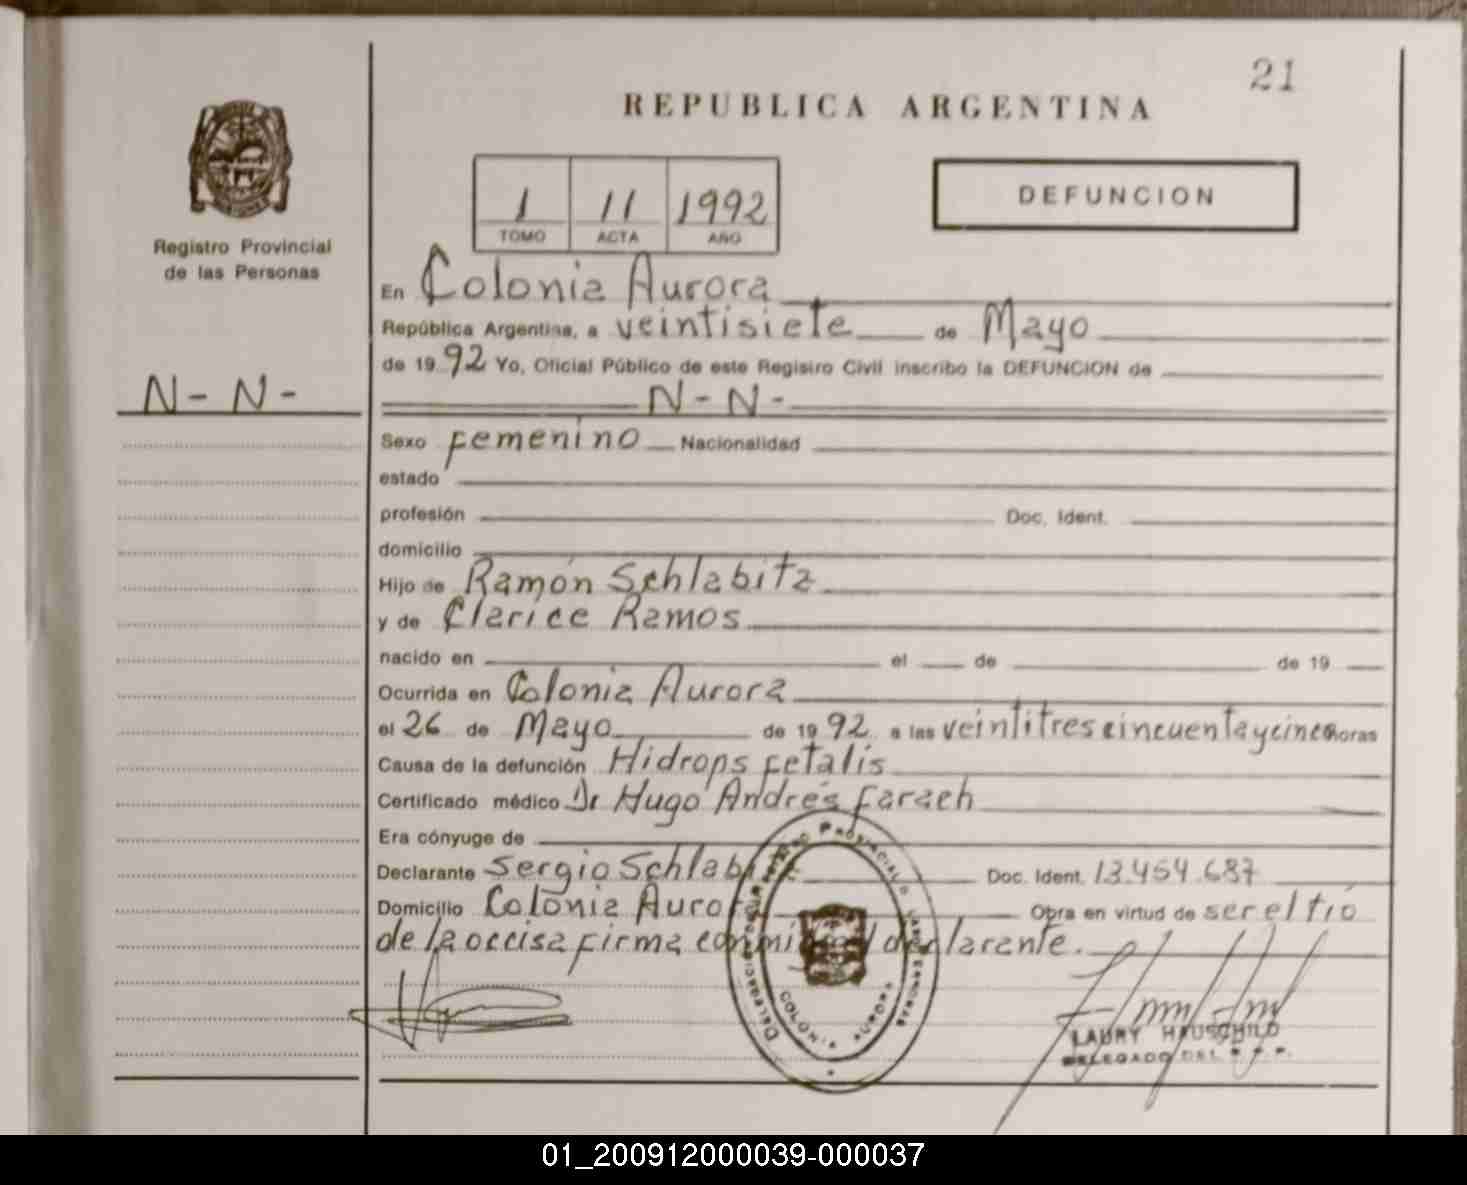 21
REPUBLICA ARGENTINA
1 11 1992
TOMO ACTA AÑO
DEFUNCION
Registro Provincial
de las Personas
En Colonia Aurora
República Argentina, a veintisiete de Mayo
de 1992 Yo, Oficial Público de este Registro Civil inscribo la DEFUNCION de
N- N-
N- N-
Sexo femenino Nacionalidad
estado
profesión Doc. Ident.
domicilio
Hijo de Ramón Schlabitz
y de Clarice Ramos
nacido en el de de 19
Ocurrida en Colonia Aurora
el 26 de Mayo de 1992 a las veintitres cincuenta y cinco horas
Causa de la defunción Hidrops fetalis
Certificado médico Dr Hugo Andrés Farach
Era cónyuge de
Declarante Sergio Schlabitz Doc. Ident. 13.454.687
Domicilio Colonia Aurora Obra en virtud de ser el tío
de la occisa firma conmigo el declarante.
REGISTRO PROVINCIAL DE LAS PERSONAS
COLONIA AURORA
LAURY HAUSCHILD
DELEGADO DEL R.P.P.
01_200912000039-000037